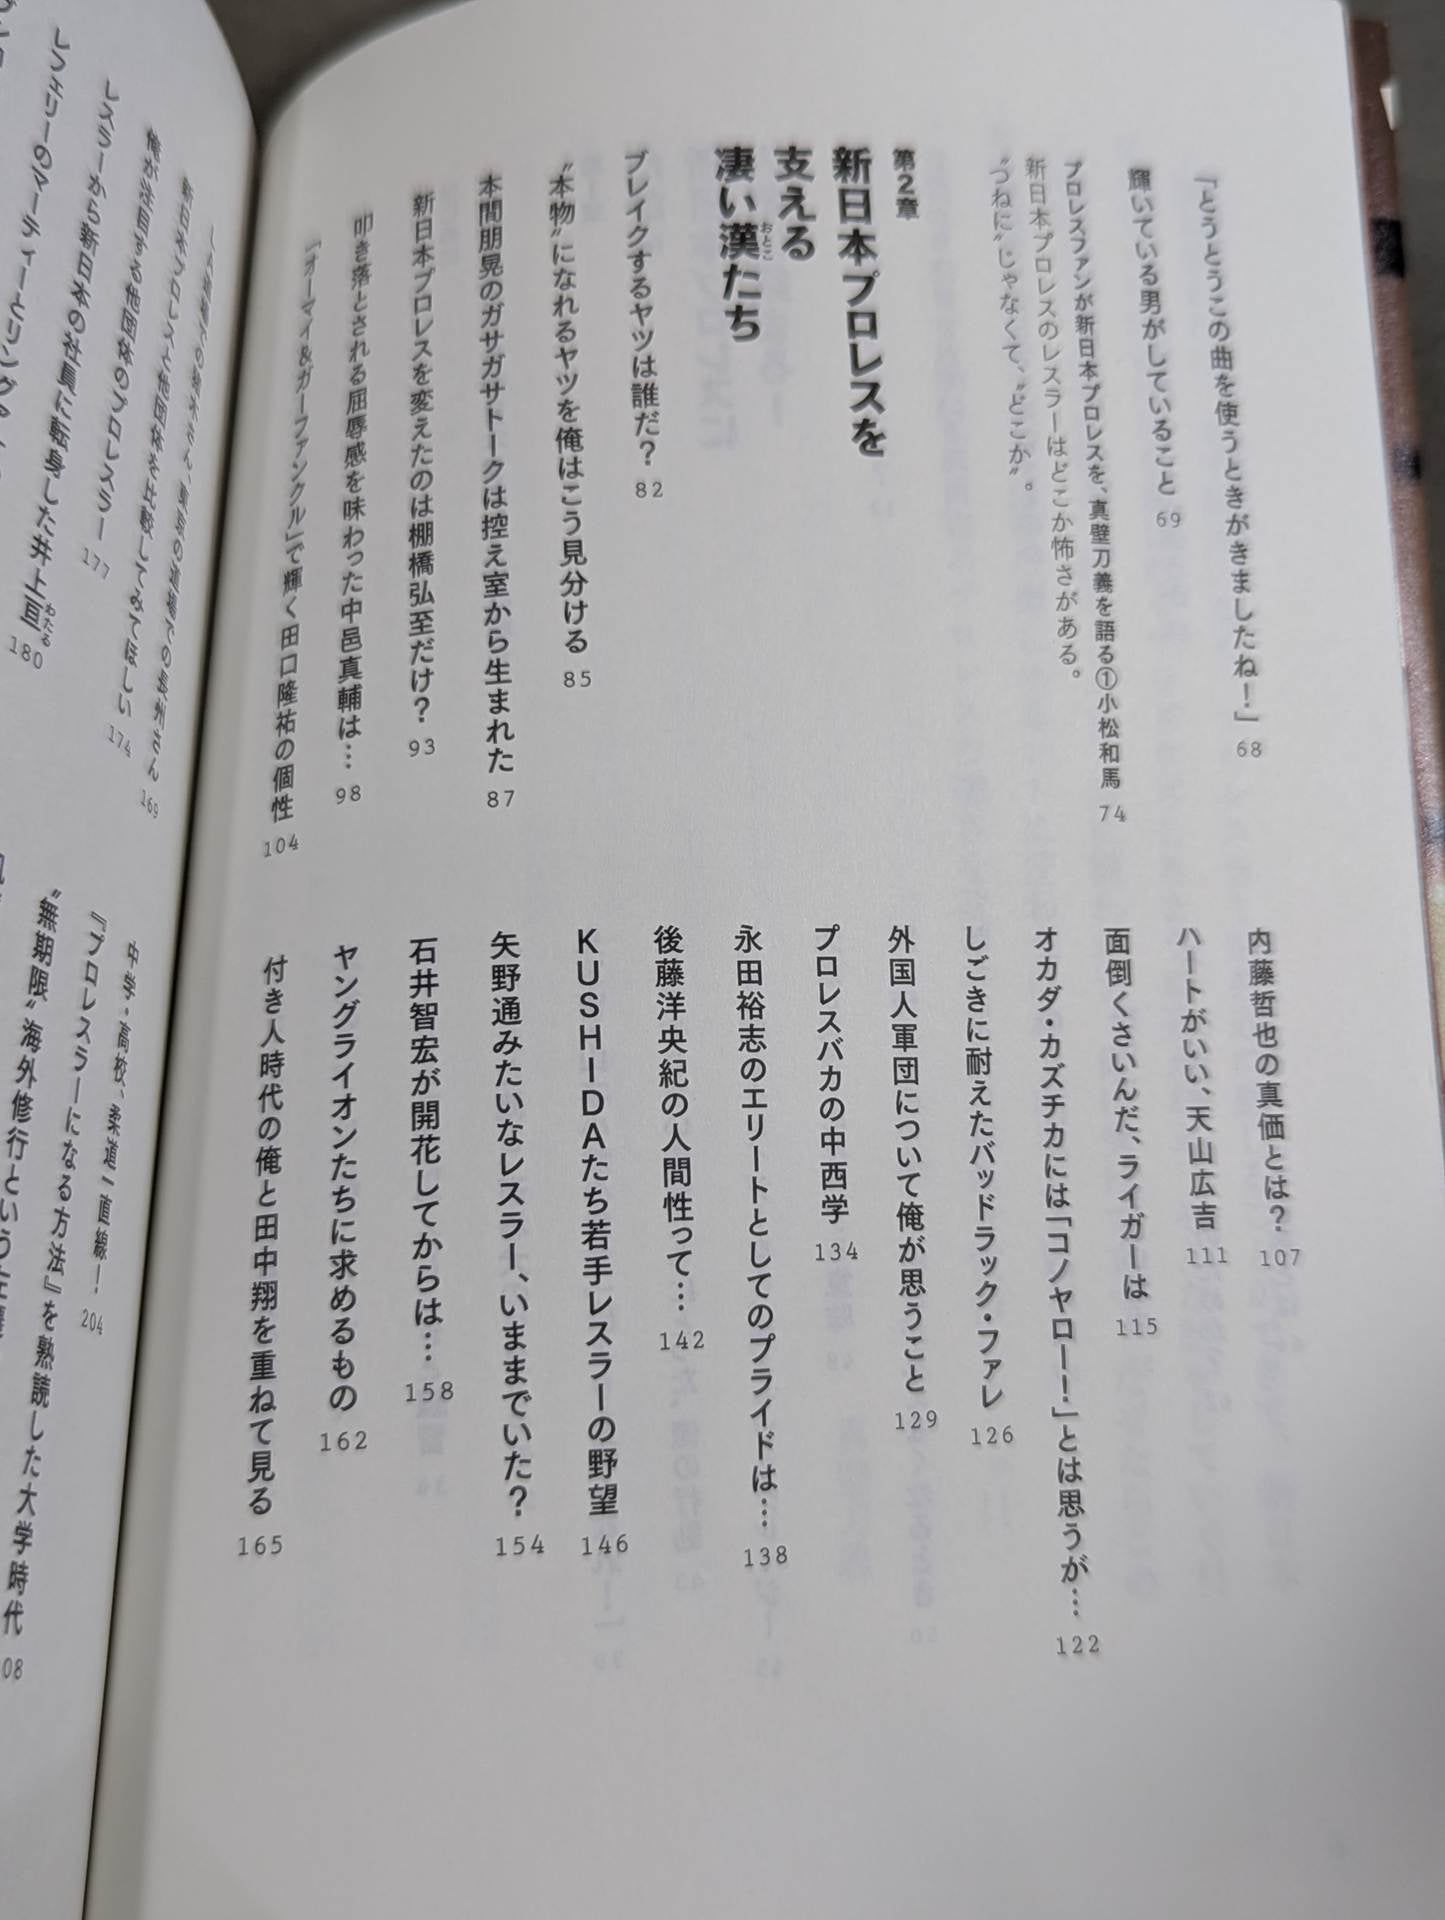 「とうとうこの曲を使うときがきましたね！」 68
輝いている男がしていること 69
プロレスファンが新日本プロレスを、真壁刀義を語る①小松和馬
新日本プロレスのレスラーはどこか怖さがある。
“つねに”じゃなくて、“どこか”。 74
第2章
新日本プロレスを
支える
凄い漢たち
おとこ
ブレイクするヤツは誰だ？ 82
“本物”になれるヤツを俺はこう見分ける 85
本間朋晃のガサガサトークは控え室から生まれた 87
新日本プロレスを変えたのは棚橋弘至だけ？ 93
叩き落とされる屈辱感を味わった中邑真輔は… 98
『オーマイ&ガーファンクル』で輝く田口隆祐の個性 104
内藤哲也の真価とは？ 107
ハートがいい、天山広吉 111
面倒くさいんだ、ライガーは 115
オカダ・カズチカには「コノヤロー！」とは思うが… 122
しごきに耐えたバッドラック・ファレ 126
外国人軍団について俺が思うこと 129
プロレスバカの中西学 134
永田裕志のエリートとしてのプライドは… 138
後藤洋央紀の人間性って… 142
KUSHIDAたち若手レスラーの野望 146
矢野通みたいなレスラー、いままでいた？ 154
石井智宏が開花してからは… 158
ヤングライオンたちに求めるもの 162
付き人時代の俺と田中翔を重ねて見る 165
の道場での長州さん 169
新日本プロレスと他団体を比較してみてほしい 174
俺が注目する他団体のプロレスラー 177
レスラーから新日本の社員に転身した井上亘 180
わたる
レフェリーのマーティーとリング
中学・高校、柔道一直線！ 204
『プロレスラーになる方法』を熟読した大学時代 208
“無期限”海外修行という